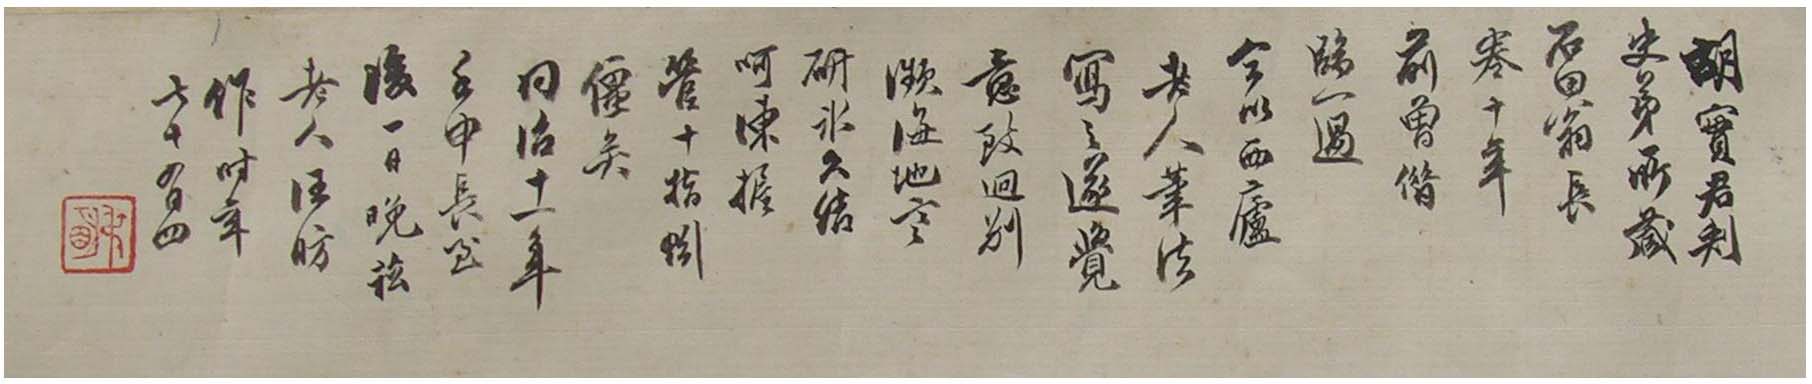 胡寶君刺
史弟所藏
石田翁長
卷十年
前曾借
臨一過
今以西廬
老人筆法
寫之遂覺
意致迥別
瀕海地寒
研氷久結
呵凍握
管十指
僵矣
同治十一年
壬申長至
後一日晚
老人汪昉
作時年
七十有四